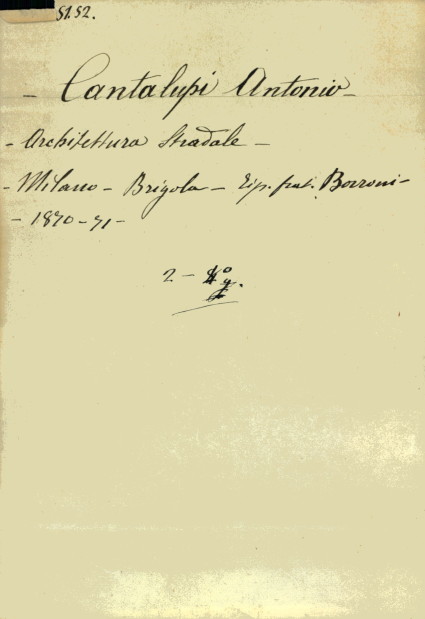 51.52.
- Cantalupi Antonio -
- Architettura Stradale -
- Milano - Brigola - Tip. frat. Borroni -
- 1870-71 -
2 -